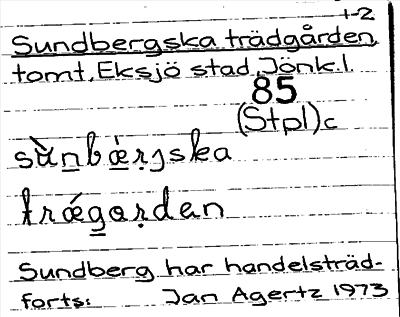 1-2
Sundbergska trädgården,
tomt, Eksjö stad, Jönk.l.
85
(Stpl)c
sù̀nbǽrjska
trǽgoṛdan
Sundberg har handelsträd-
forts: Jan Agertz 1973